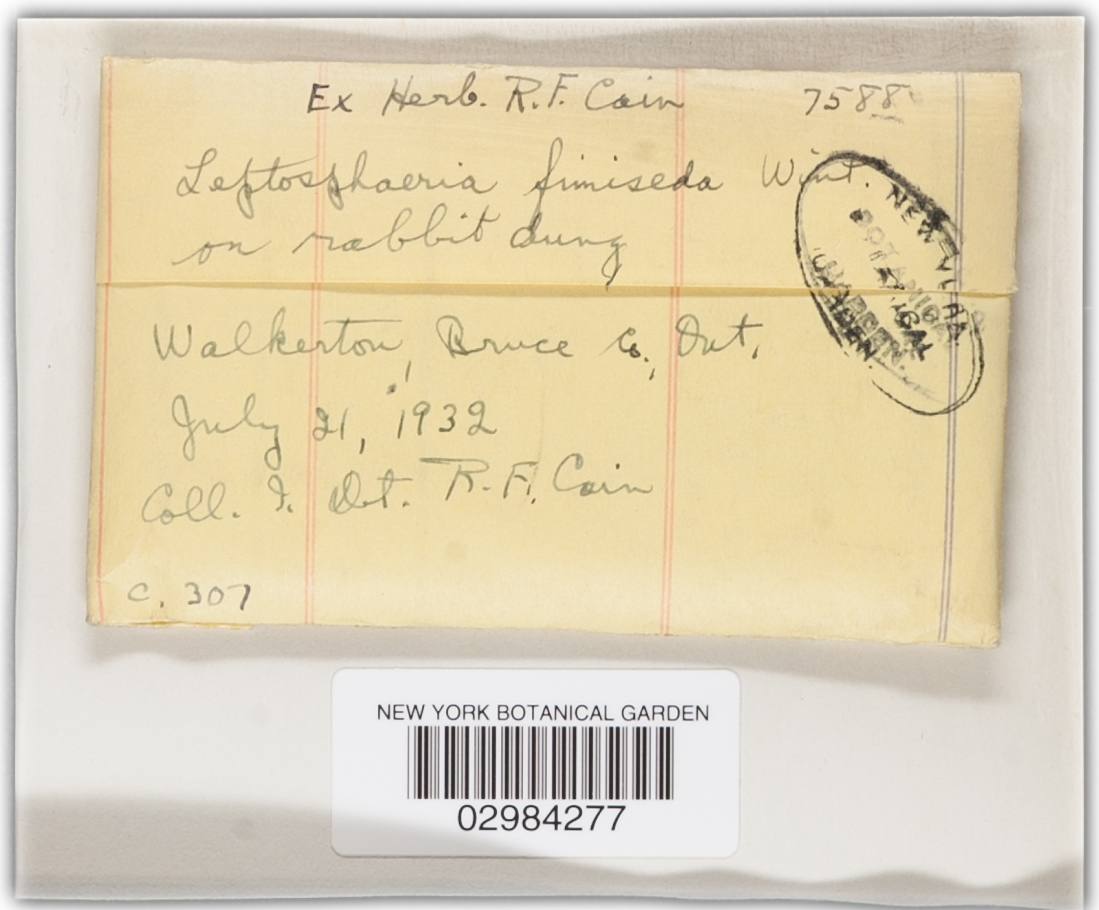 Ex Herb. R.F. Cain 7588
Leptosphaeria fimiseda Wint.
on rabbit dung
NEW YORK
BOTANICAL
GARDEN.
Walkerton, Bruce Co., Ont.
July 21, 1932
Coll. & Det. R.F. Cain
C. 307
NEW YORK BOTANICAL GARDEN
02984277